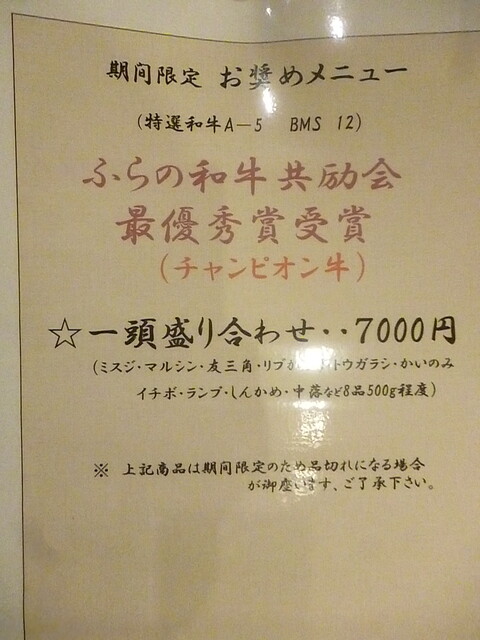 期間限定 お奨めメニュー
(特選和牛A－5 BMS 12)
ふらの和牛共励会
最優秀賞受賞
(チャンピオン牛)
☆一頭盛り合わせ‥7000円
(ミスジ・マルシン・友三角・リブか トウガラシ・かいのみ
イチボ・ランプ・しんかめ・中落など8品500g程度)
※ 上記商品は期間限定のため品切れになる場合
が御座います、ご了承下さい。